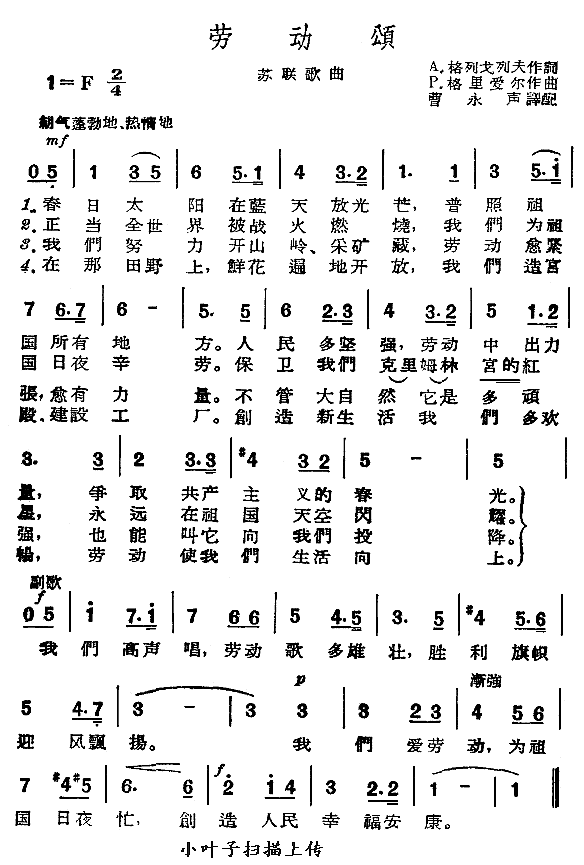 劳动頌
苏联歌曲
1=F 2/4
A.格列戈列夫作詞
P.格里爱尔作曲
曹永声譯配
朝气蓬勃地、热情地
mf
0 5 | 1 3 5 | 6 5·1 | 4 3·2 | 1· 1 | 3 5·i |
1.春日太阳在藍天放光芒,普照祖
2.正当全世界被战火燃燒,我們为祖
3.我們努力开山岭、采矿藏,劳动愈緊
4.在那田野上,鮮花遍地开放,我們造宮
7 6·7 | 6 - | 5· 5 | 6 2·3 | 4 3·2 | 5 1·2 |
国所有地方。人民多坚强,劳动中出力
国日夜辛劳。保卫我們克里姆林宮的紅
張,愈有力量。不管大自然它是多頑
殿、建設工厂。創造新生活我們多欢
3· 3 | 2 3·3 | #4 3 2 | 5 - | 5
量,爭取共产主义的春光。
星,永远在祖国天空閃耀。
强,也能叫它向我們投降。
暢,劳动使我們生活向上。
副歌
f
0 5 | i 7·i | 7 6 6 | 5 4·5 | 3· 5 | #4 5·6 |
我們高声唱,劳动歌多雄壮,胜利旗帜
p 漸強
5 4·7 | 3 - | 3 3 | 3 2·2 | 4 5 6 |
迎风飄揚。我們爱劳动,为祖
f
7 #4 #5 | 6· 6 | 2 i 4 | 3 2·2 | 1 - | 1 ‖
国日夜忙,創造人民幸福安康。
小叶子扫描上传